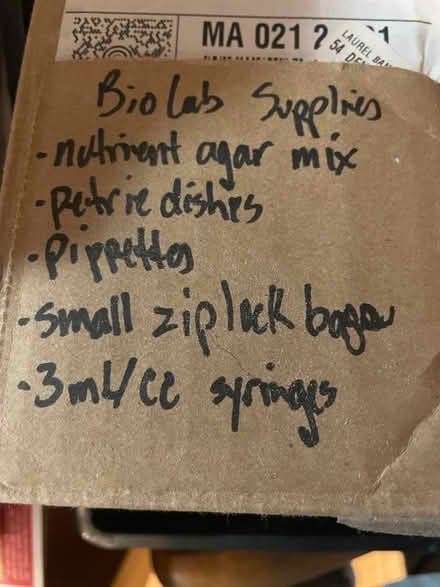 MA 021
LAUREL
Bio Lab Supplies
-nutrient agar mix
-petrie dishes
-pipettes
-small ziplock bags
-3mL/cc syringes